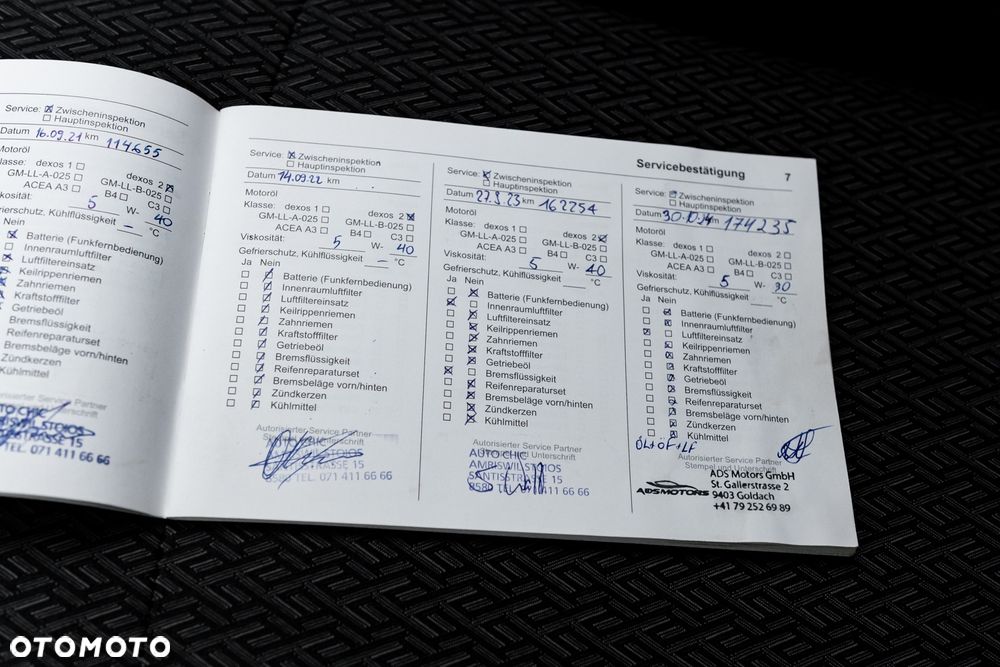 Service: ☒ Zwischeninspektion
☐ Hauptinspektion
Datum 16.09.21 km 114655
Motoröl
Klasse: dexos 1 ☐ dexos 2 ☒
GM-LL-A-025 ☐ GM-LL-B-025 ☐
ACEA A3 ☐ B4 ☐ C3 ☐
5 W- 40
Kühlflüssigkeit – °C
Nein
Batterie (Funkfernbedienung)
Innenraumluftfilter
Luftfiltereinsatz
Keilrippenriemen
Zahnriemen
Kraftstofffilter
Getriebeöl
Bremsflüssigkeit
Reifenreparaturset
Bremsbeläge vorn/hinten
Zündkerzen
Kühlmittel
Service Partner
TEL. 071 411 66 66
Servicebestätigung 7
Service: ☒ Zwischeninspektion
☐ Hauptinspektion
Datum 14.09.22 km
Motoröl
Klasse: dexos 1 ☐ dexos 2 ☒
GM-LL-A-025 ☐ GM-LL-B-025 ☐
ACEA A3 ☐ B4 ☐ C3 ☐
Viskosität: 5 W- 40
Gefrierschutz, Kühlflüssigkeit – °C
Ja Nein
☐ ☒ Batterie (Funkfernbedienung)
☐ ☒ Innenraumluftfilter
☐ ☒ Luftfiltereinsatz
☐ ☒ Keilrippenriemen
☐ ☒ Zahnriemen
☐ ☒ Kraftstofffilter
☐ ☒ Getriebeöl
☐ ☒ Bremsflüssigkeit
☐ ☒ Reifenreparaturset
☐ ☒ Bremsbeläge vorn/hinten
☐ ☒ Zündkerzen
☐ ☒ Kühlmittel
Autorisierter Service Partner
8580 TEL. 071 411 66 66
Service: ☒ Zwischeninspektion
☐ Hauptinspektion
Datum 27.9.23 km 162254
Motoröl
Klasse: dexos 1 ☐ dexos 2 ☒
GM-LL-A-025 ☐ GM-LL-B-025 ☐
ACEA A3 ☐ B4 ☐ C3 ☐
Viskosität: 5 W- 40
Gefrierschutz, Kühlflüssigkeit °C
Ja Nein
☐ ☒ Batterie (Funkfernbedienung)
☒ ☐ Innenraumluftfilter
☐ ☒ Luftfiltereinsatz
☐ ☒ Keilrippenriemen
☐ ☒ Zahnriemen
☐ ☒ Kraftstofffilter
☐ ☒ Getriebeöl
☒ ☐ Bremsflüssigkeit
☐ ☒ Reifenreparaturset
☐ ☒ Bremsbeläge vorn/hinten
☐ ☒ Zündkerzen
☐ ☒ Kühlmittel
Autorisierter Service Partner
Stempel und Unterschrift
AUTO CHIC
SÄNTISSTRASSE 15
8580 TEL. 071 411 66 66
Service: ☒ Zwischeninspektion
☐ Hauptinspektion
Datum 30.10.24 km 174235
Motoröl
Klasse: dexos 1 ☐ dexos 2 ☐
GM-LL-A-025 ☐ GM-LL-B-025 ☐
ACEA A3 ☐ B4 ☐ C3 ☐
Viskosität: 5 W- 30
Gefrierschutz, Kühlflüssigkeit °C
Ja Nein
☐ ☒ Batterie (Funkfernbedienung)
☐ ☒ Innenraumluftfilter
☒ ☐ Luftfiltereinsatz
☐ ☒ Keilrippenriemen
☐ ☒ Zahnriemen
☐ ☒ Kraftstofffilter
☐ ☒ Getriebeöl
☐ ☒ Bremsflüssigkeit
☐ ☒ Reifenreparaturset
☐ ☒ Bremsbeläge vorn/hinten
☐ ☒ Zündkerzen
☐ ☒ Kühlmittel
ÖL+ÖF+LF
Autorisierter Service Partner
Stempel und Unterschrift
ADSMOTORS
ADS Motors GmbH
St. Gallerstrasse 2
9403 Goldach
+41 79 252 69 89
OTOMOTO